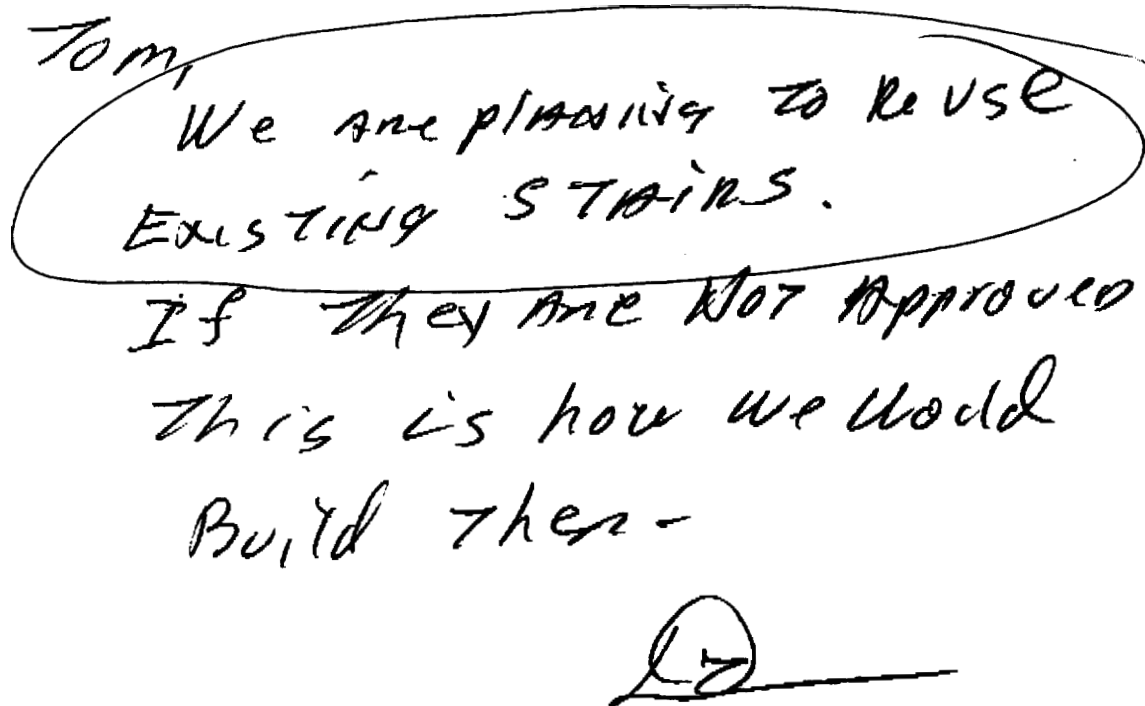 Tom,
We are planning to Re use
Existing STAIRS.
If They Are Not Approved
This is how we Would
Build Them -